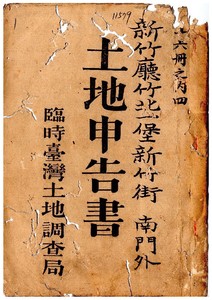 11579
六冊之内四
新竹廳竹北一堡新竹街 南門外
土地申告書
臨時臺灣土地調查局